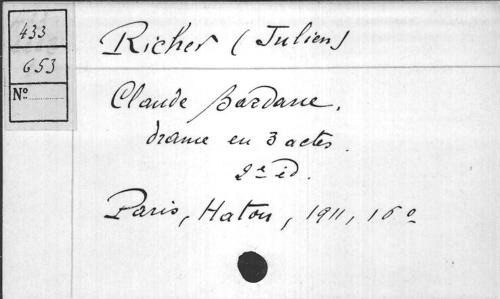 433
653
Nº
Richer (Julien)
Claude Bardane,
drame en 3 actes.
2e éd.
Paris, Haton, 1911, 16º